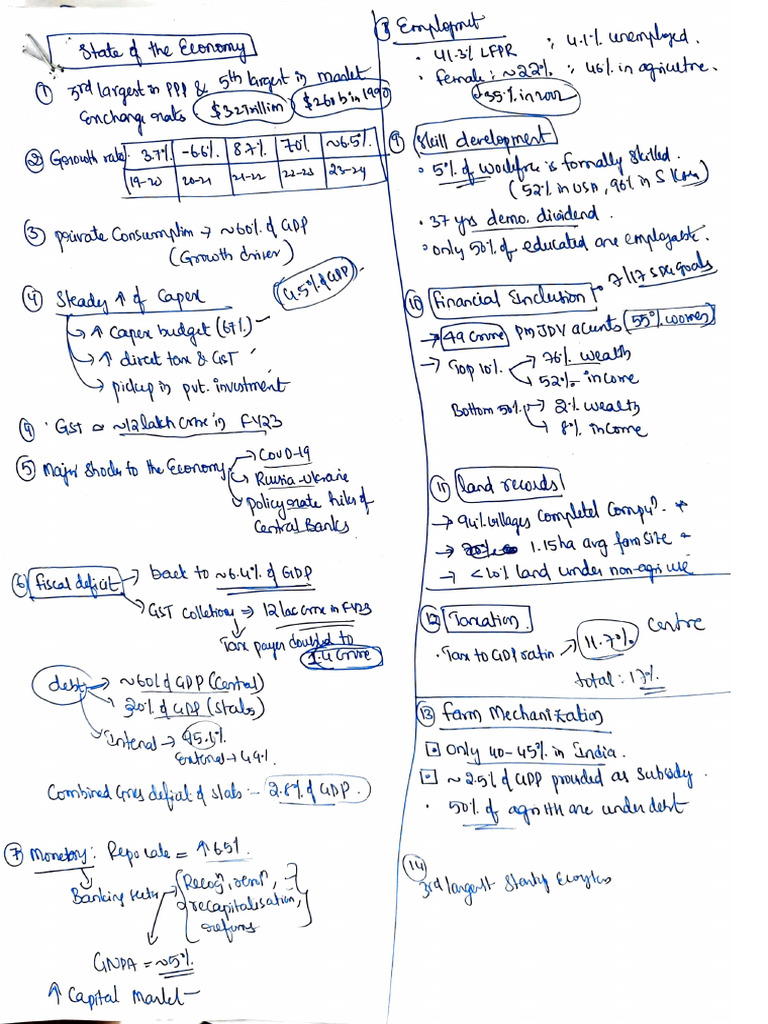 State of the Economy
① 3rd largest in PPP & 5th largest in market
Exchange rates $3.2 trillion $260 b in 1990
② Growth rate 3.7% -6.6% 8.7% 7.0% ~6.5%
19-20 20-21 21-22 22-23 23-24
③ private Consumption → ~60% of GDP
(Growth driver)
④ Steady ↑ of Capex 4.5% of GDP
→ ↑ capex budget (67%)
→ ↑ direct tax & GST
→ pickup in pvt. investment
④ GST ≈ ~12 lakh crore in FY23
⑤ Major Shocks to the Economy → COVID-19
→ Russia-Ukraine
→ Policy rate hikes of
Central Banks
⑥ fiscal deficit → back to ~6.4% of GDP
→ GST colletions → 12 lac crore in FY23
Tax payer doubled to
1.4 crore
debt → ~60% of GDP (Central)
→ 30% of GDP (States)
→ Internal → 95.1%
External → 4.9%
Combined Gross deficial of states :- 2.8% of GDP.
⑦ Monetary: Repo rate = ↑ 6.5%
Banking
→ Recogⁿ,
recapitalisation,
reforms
GNPA = ~5%
↑ Capital Market
⑧ Employmet
• 41.3% LFPR ; 4.1% unemployed.
• female: ~22% ; 46% in agricultre.
↓35% in 2002
⑨ Skill development
• 5% of workforce is formally skilled.
(52% in USA, 96% in S Korea)
• 37 yrs demo. dividend.
• only 50% of educated are employable.
⑩ financial Inclusion → 7/17 SDG goals
→ 49 crore PMJDY acconts (55% women)
→ Top 10% → 76% wealth
→ 52% income
Bottom 50% → 2% wealth
→ 8% income
⑪ land records
→ 94% villages completel Computⁿ.
→ 1.15 ha avg farm size
→ <10% land under non-agri use
⑫ Taxation
• Tax to GDP ratio → 11.7% Centre
total: 17%
⑬ farm Mechanization
only 40-45% in India.
~2.5% of GDP provided as Subsidy.
• 50% of agri HH are under debt
⑭
3rd largest